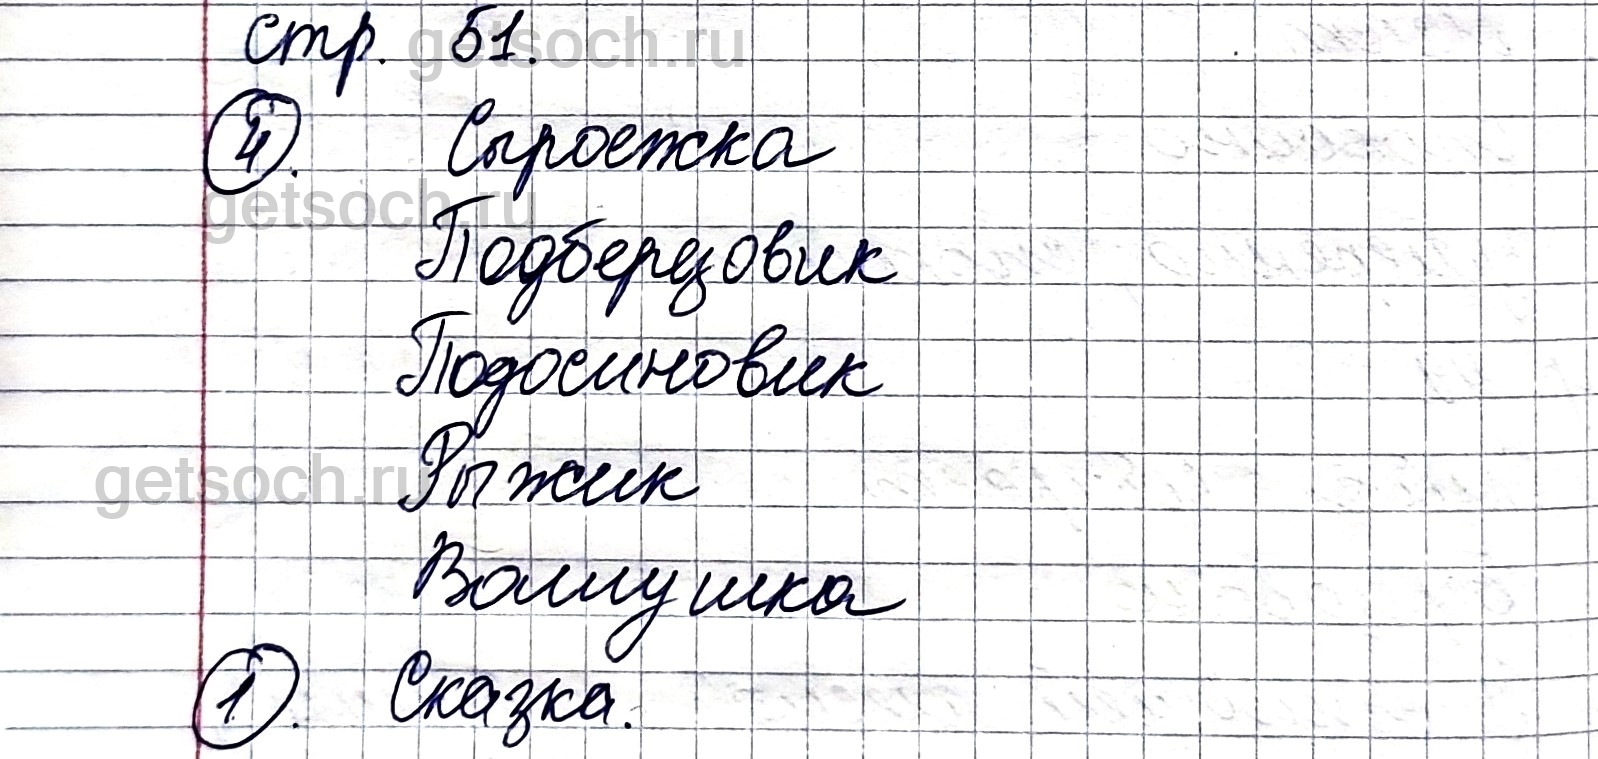 стр. 51.
getsoch.ru
4. Сыроежка
getsoch.ru
Подберезовик
Подосиновик
getsoch.ru
Рыжик
Волнушка
1. Сказка.